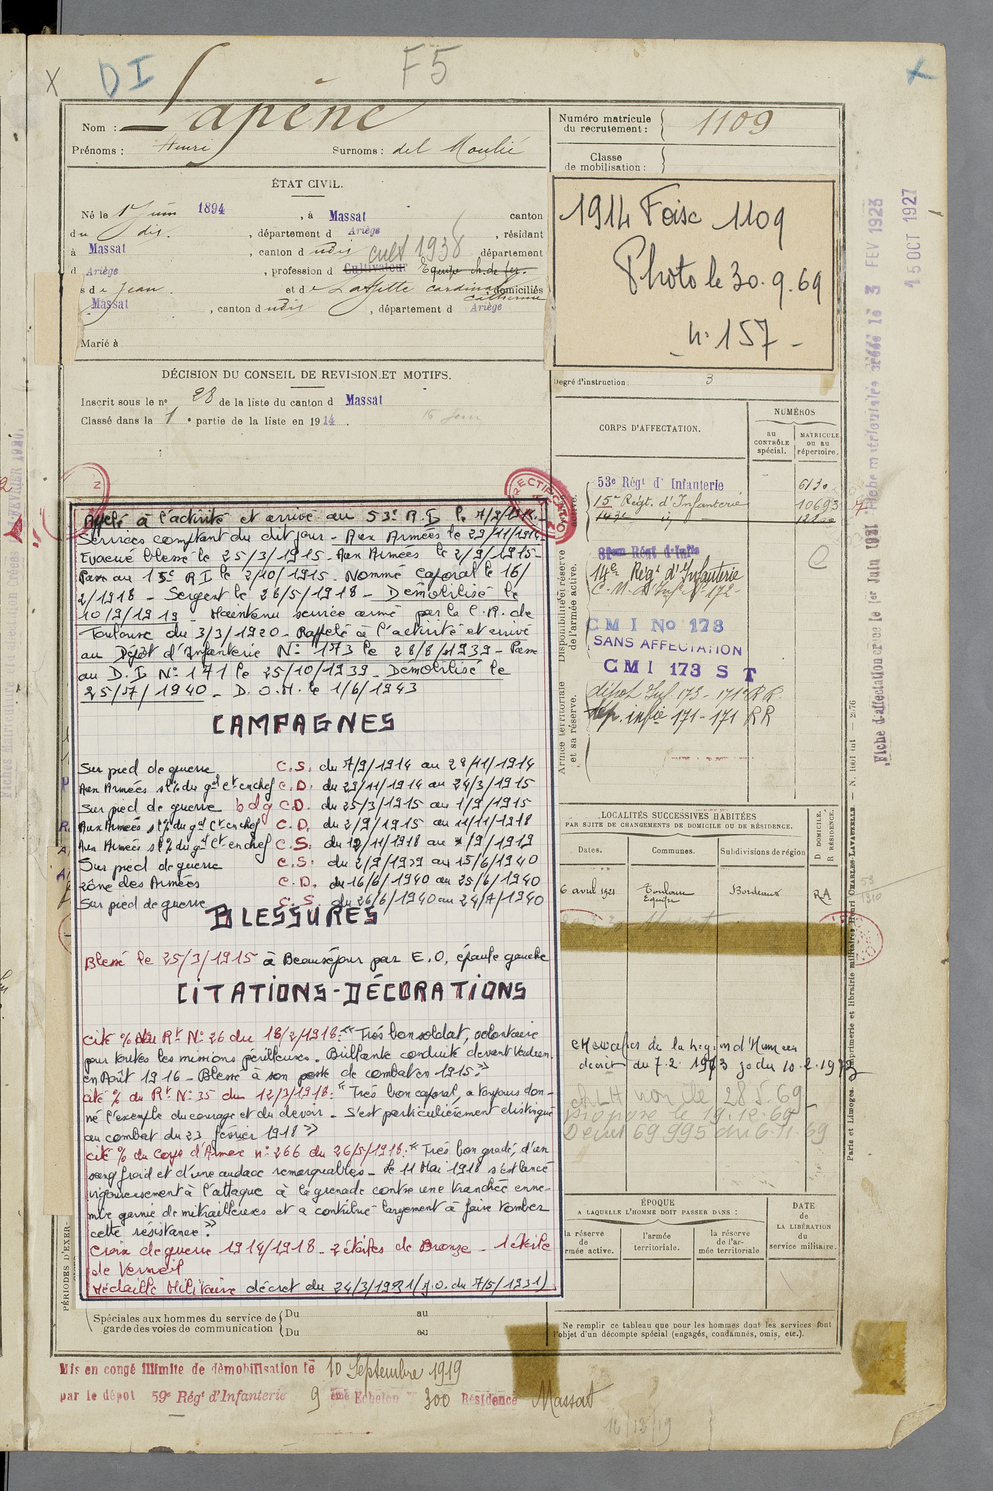 DI
F5
Nom : Lapène
Prénoms : Henri Surnoms : del Moulié
Numéro matricule du recrutement : 1109
Classe de mobilisation :
ÉTAT CIVIL.
Né le 1er Juin 1894, à Massat canton
du dit, département d Ariège, résidant
à Massat, canton d udit département
d Ariège, profession d Cultivateur Equipe ch. de fer.
cult 1938
s de Jean et de Laffitte Cardine Catherine domiciliés
Massat, canton d udit, département d Ariège
Marié à
1914 Foix 1109
Photo le 30.9.69
n° 157 -
DÉCISION DU CONSEIL DE REVISION ET MOTIFS.
Inscrit sous le n° 28 de la liste du canton d Massat
Classé dans la 1e partie de la liste en 1914.
Degré d'instruction : 3
CORPS D'AFFECTATION.
NUMÉROS
AU CONTRÔLE spécial.
MATRICULE OU AU répertoire.
53e Régt d'Infanterie
15e Régt. d'Infanterie 10693
14e Régt d'Infanterie
C M I No 173
SANS AFFECTATION
CMI 173 S T
dépot Inf 173 - 171e RR
dép. infie 171 - 171 RR
Disponibilité et réserve de l'armée active.
Armée territoriale et sa réserve.
RECTIFICATION
Appelé à l'activité et arrivé au 53e R.I le 7/9/1914.
Services comptant du dit jour - Aux Armées le 29/11/1914.
Evacué blessé le 25/3/1915 - Aux Armées le 2/9/1915 -
Passé au 15e RI le 2/10/1915. Nommé Caporal le 16/
2/1918 - Sergent le 26/5/1918 - Démobilisé le
10/9/1919 - Maintenu service armé par la C.R. de
Toulouse du 3/3/1920 - Rappelé à l'activité et arrivé
au Dépôt d'Infanterie N° 173 le 28/8/1939 - Passé
au D.I N° 171 le 25/10/1939 - Démobilisé le
25/7/1940 - D.O.M. le 1/6/1943
CAMPAGNES
Sur pied de guerre C.S. du 7/9/1914 au 28/11/1914
Aux Armées s/s du gal Ct en chef C.D. du 29/11/1914 au 24/3/1915
Sur pied de guerre bdg C.D. du 25/3/1915 au 1/9/1915
Aux Armées s/s du gal Ct en chef C.D. du 2/9/1915 au 11/11/1918
Aux Armées s/s du gal Ct en chef C.S. du 12/11/1918 au /9/1919
Sur pied de guerre C.S. du 2/9/1939 au 15/6/1940
Zône des Armées C.D. du 16/6/1940 au 25/6/1940
Sur pied de guerre C.S. du 26/6/1940 au 24/7/1940
BLESSURES
Blessé le 25/3/1915 à Beauséjour par E.O, épaule gauche
CITATIONS-DÉCORATIONS
Cité % du Rt N° 26 du 18/2/1916: "Très bon soldat, volontaire
pour toutes les missions périlleuses. Brillante conduite devant Verdun
en Août 1916 - Blessé à son poste de combat en 1915."
Cité % du Rt N° 35 du 12/3/1918: "Très bon caporal, a toujours don-
né l'exemple du courage et du devoir. S'est particulièrement distingué
au combat du 23 février 1918"
Cité % du Corps d'Armée n° 266 du 26/5/1918. "Très bon gradé, d'un
sang froid et d'une audace remarquables - le 11 Mai 1918 s'est lancé
vigoureusement à l'attaque à la grenade contre une tranchée enne-
mie garnie de mitrailleuses et a contribué largement à faire tomber
cette résistance."
Croix de guerre 1914/1918 - 2 étoiles de Bronze - 1 étoile
de Vermeil
Médaille Militaire décret du 24/3/1931 (J.O. du 7/5/1931)
LOCALITÉS SUCCESSIVES HABITÉES
PAR SUITE DE CHANGEMENTS DE DOMICILE OU DE RÉSIDENCE.
Dates. Communes. Subdivisions de région D DOMICILE. R RÉSIDENCE.
6 avril 1921 Toulouse Bordeaux RA
Chevalier de la Légion d'Honneur
décret du 7.2.1973 jo du 10.2.1973
Proposé le 19.12.69
ÉPOQUE
A LAQUELLE L'HOMME DOIT PASSER DANS :
la réserve de l'armée active. l'armée territoriale. la réserve de l'armée territoriale
DATE de LA LIBÉRATION du service militaire.
Ne remplir ce tableau que pour les hommes dont les services font
l'objet d'un décompte spécial (engagés, condamnés, omis, etc.).
PÉRIODES D'EXER-
Spéciales aux hommes du service de garde des voies de communication
Du au
Du au
Mis en congé illimité de démobilisation le 10 Septembre 1919
par le dépôt 59e Régt d'Infanterie 9 ème Echelon 300 Résidence Massat
16/12/19
Fiche matriculaire créée le 3 FEV 1923
15 OCT 1927
Fiche d'affectation créée le 1er Juin 1921
Paris et Limoges. Imprimerie et librairie militaires Henri CHARLES-LAVAUZELLE